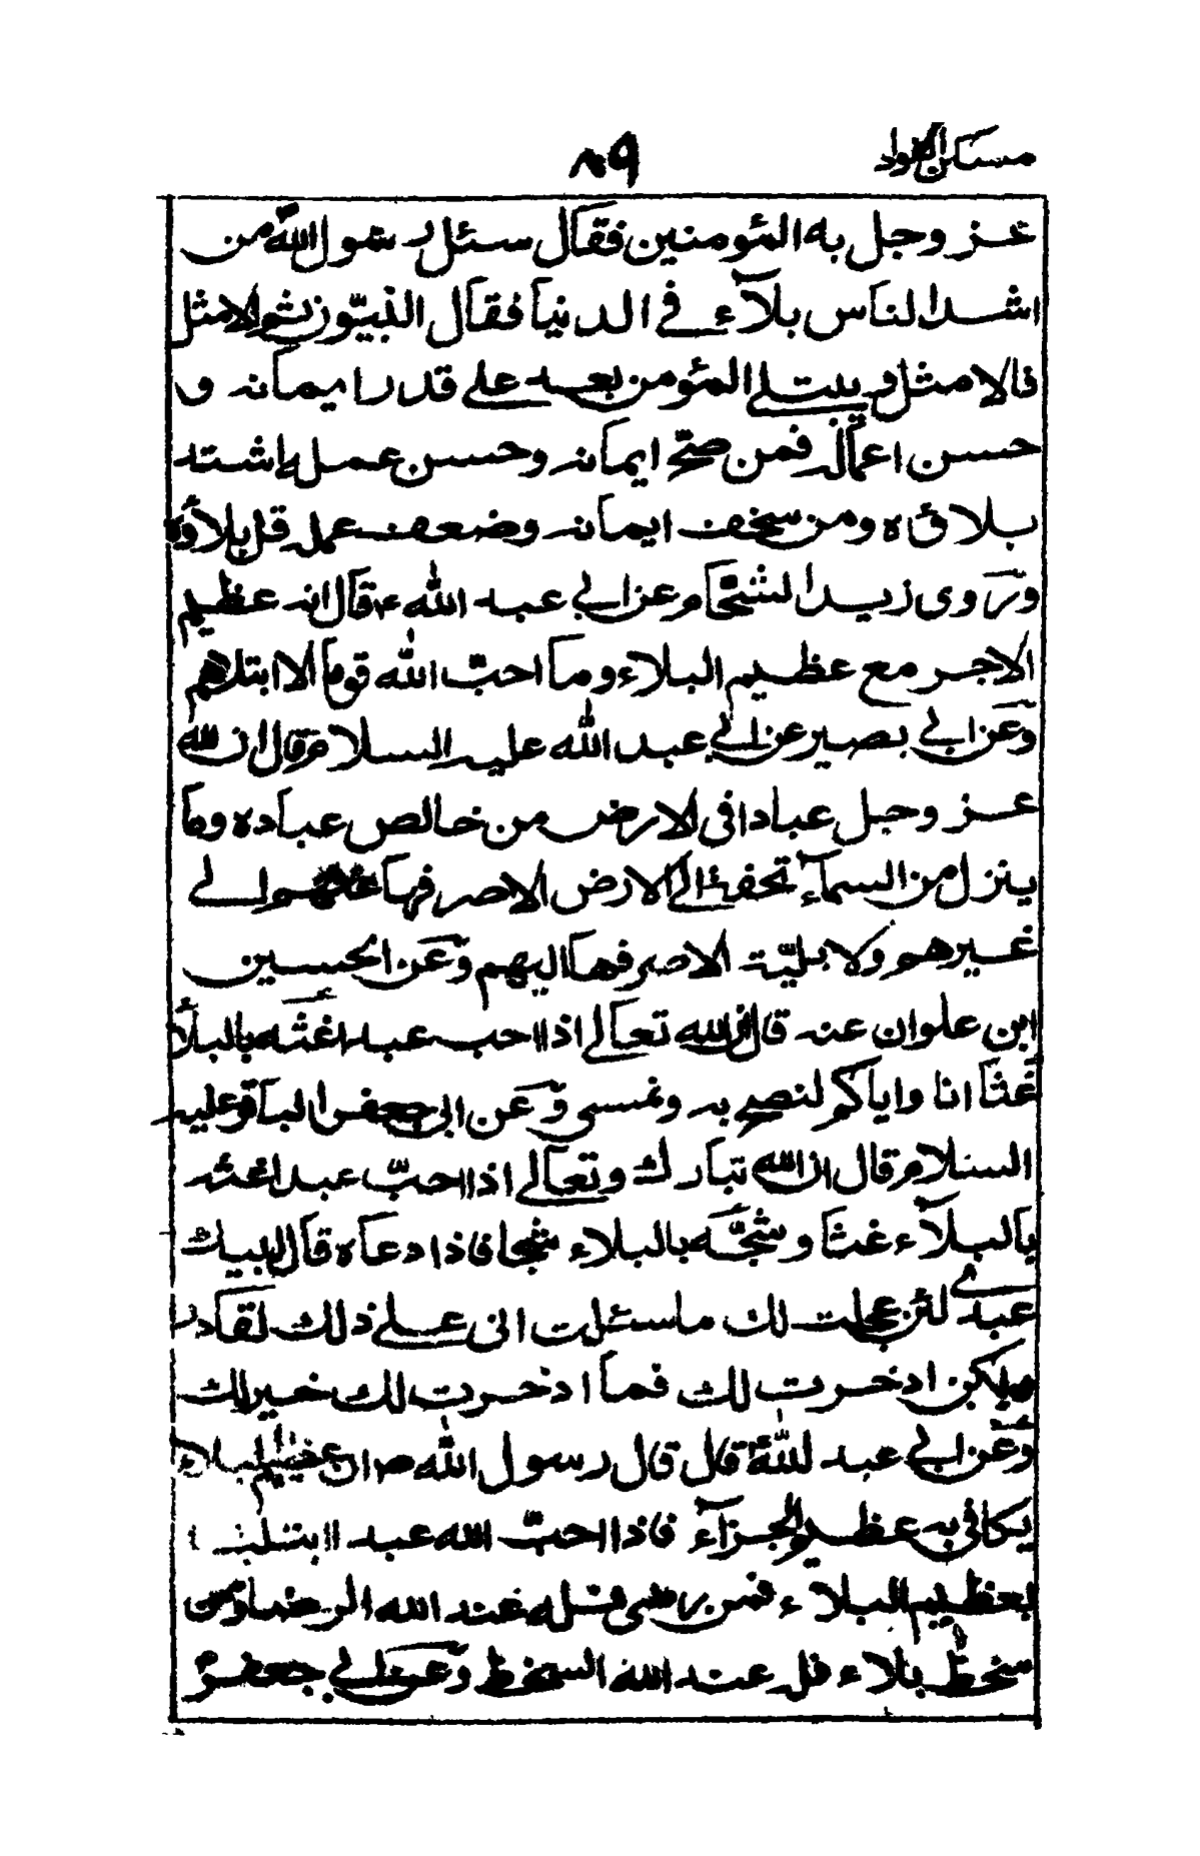 مسكن الفؤاد
٨٩
عز وجل به المؤمنين فقال سئل رسول الله من
اشد الناس بلآء في الدنيا فقال النبيّون ثم الامثل
فالامثل ويبتلى المؤمن بعد على قدر ايمانه و
حسن اعماله فمن صحّ ايمانه وحسن عمله اشتد
بلاؤه ومن سخف ايمانه وضعف عمله قل بلاؤه
وروى زيد الشحّام عن ابي عبد الله ع قال ان عظيم
الاجر مع عظيم البلاء وما احبّ الله قوما الا ابتلاهم
وعن ابي بصير عن ابي عبد الله عليه السلام قال ان لله
عز وجل عبادا في الارض من خالص عباده وما
ينزل من السمآء تحفة الى الارض الا صرفها عنهم الى
غيرهم ولا بليّة الا صرفها اليهم وعن الحسين
ابن علوان عنه قال ان الله تعالى اذا احب عبدا غثه بالبلاء
غثا انا واياكم لنصبح به ونمسي وعن ابى جعفر الباقر عليه
السلام قال ان الله تبارك وتعالى اذا احبّ عبدا غثه
بالبلآء غثا وثجّه بالبلاء ثجا فاذا دعاه قال لبيك
عبدي لئن عجلت لك ما سئلت انى على ذلك لقادر
ولكن ادخرت لك فما ادخرت لك خير لك
وعن ابي عبد الله ع قال قال رسول الله ص ان عظيم البلاء
يكافى به عظيم الجزآء فاذا احبّ الله عبدا ابتلاه
بعظيم البلاء فمن رضى فله عند الله الرضا ومن
سخط بلاء فله عند الله السخط وعن ابي جعفر ع